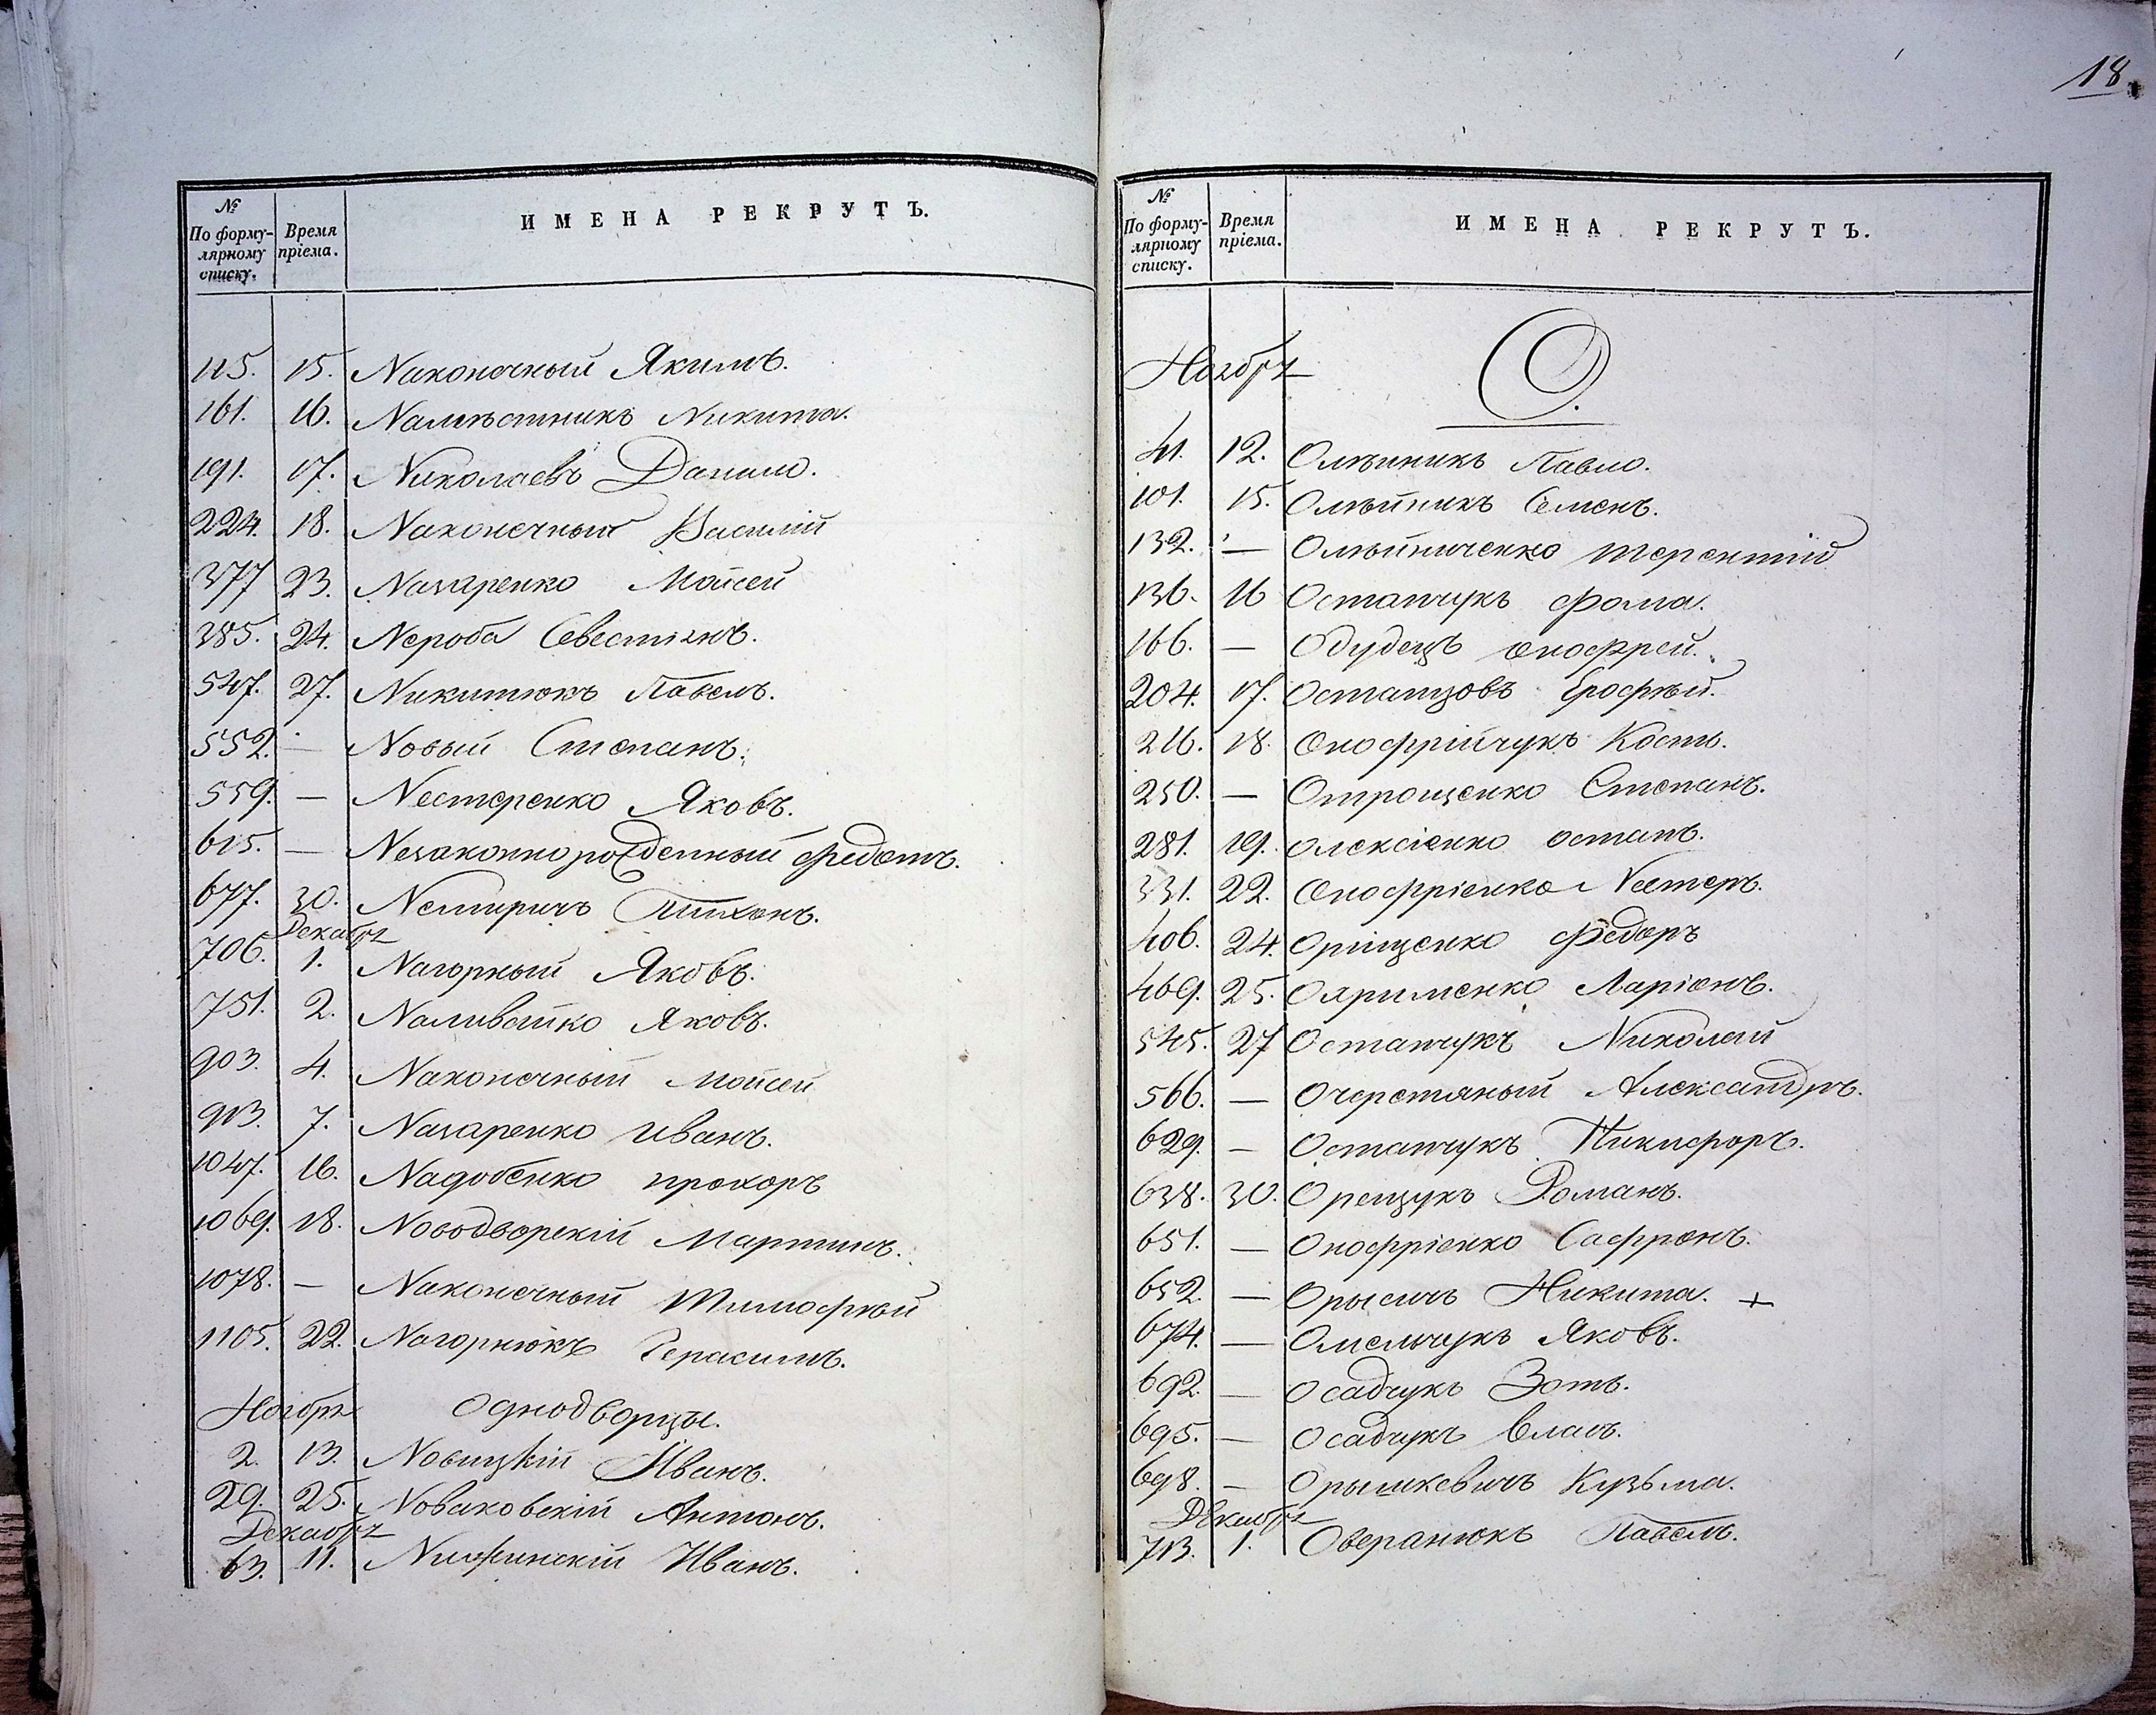 № По форму-лярному списку. Время пріема. ИМЕНА РЕКРУТЪ.
115. 15. Наконечный Якимъ.
161. 16. Намѣстникъ Никита.
191. 17. Николаевъ Данило.
224. 18. Наконечный Василій
377 23. Назаренко Мойсей
385. 24. Нероба Севестіянъ.
547. 27. Никитюкъ Павелъ.
552. — Новый Степанъ.
559. — Нестеренко Яковъ.
615. — Незаконнорожденный Федотъ.
677. 30. Немиричъ
Декабря
706. 1. Нагорный Яковъ.
751. 2. Наливайко Яковъ.
903. 4. Наконечный Мойсей
913. 7. Назаренко Иванъ.
1047. 16. Надобенко Прохоръ
1069. 18. Новодворскій Мартинъ.
1078. — Наконечный Тимофѣй
1105. 22. Нагорнюкъ Герасимъ.
Ноября Однодворцы.
2. 13. Новицкій Иванъ.
29. 25. Новаковскій Антонъ.
Декабря
63. 11. Иванъ.
18.
№ По форму-лярному списку. Время пріема. ИМЕНА РЕКРУТЪ.
Ноября О.
41. 12. Олѣйникъ Павло.
101. 15. Олѣйникъ Семенъ.
132. — Олѣйниченко Терентій
136. 16 Остапчукъ Фома.
166. — Одудецъ Онофрей.
204. 17. Остапцовъ Ерофѣй.
216. 18. Онофрійчукъ Кость.
250. — Отрощенко Степанъ.
281. 19. Олексіенко Остапъ.
331. 22. Онофріенко Нестеръ.
406. 24. Оріщенко Федоръ
469. 25. Охрименко Ларіонъ.
545. 27 Остапчукъ Николай
566. — Очеретяный Александръ.
629. — Остапчукъ Никифоръ.
638. 30. Орещукъ Романъ.
651. — Онофріенко Сафронъ.
652. — Орысичъ Никита. +
674. — Омельчукъ Яковъ.
692. — Осадчукъ Зотъ.
695. — Осадчукъ Власъ.
698. — Орышкевичъ Кузьма.
Декабря
713. 1. Оверанюкъ Павелъ.